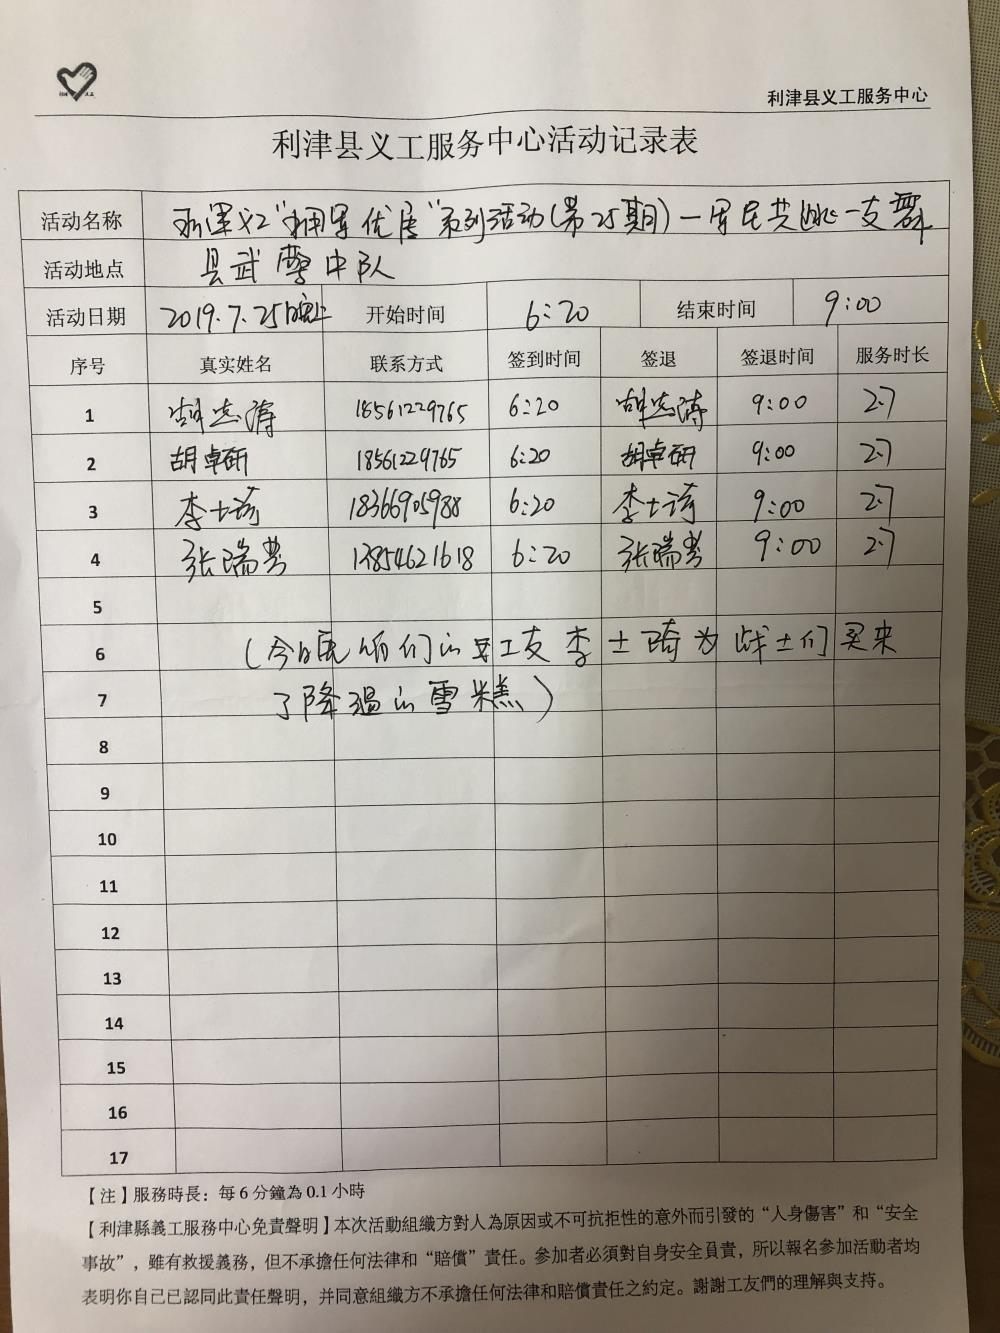 利津县义工服务中心
利津县义工服务中心活动记录表
活动名称 利津义工“拥军优属”系列活动(第25期)一军民共跳一支舞
活动地点 县武警中队
活动日期 2019.7.25晚上 开始时间 6:20 结束时间 9:00
序号 真实姓名 联系方式 签到时间 签退 签退时间 服务时长
1 胡志涛 18561229765 6:20 胡志涛 9:00 2.7
2 胡卓研 18561229765 6:20 胡卓研 9:00 2.7
3 李士琦 18366905988 6:20 李士琦 9:00 2.7
4 张瑞芳 13854621618 6:20 张瑞芳 9:00 2.7
5
6 (今晚 咱们的义工友李士琦为战士们买来
7 了降温的雪糕)
8
9
10
11
12
13
14
15
16
17
【注】服務時長：每6分鐘為0.1小時
【利津縣義工服務中心免責聲明】本次活動組織方對人為原因或不可抗拒性的意外而引發的“人身傷害”和“安全
事故”，雖有救援義務，但不承擔任何法律和“賠償”責任。參加者必須對自身安全負責，所以報名參加活動者均
表明你自己已認同此責任聲明，并同意組織方不承擔任何法律和賠償責任之約定。謝謝工友們的理解與支持。